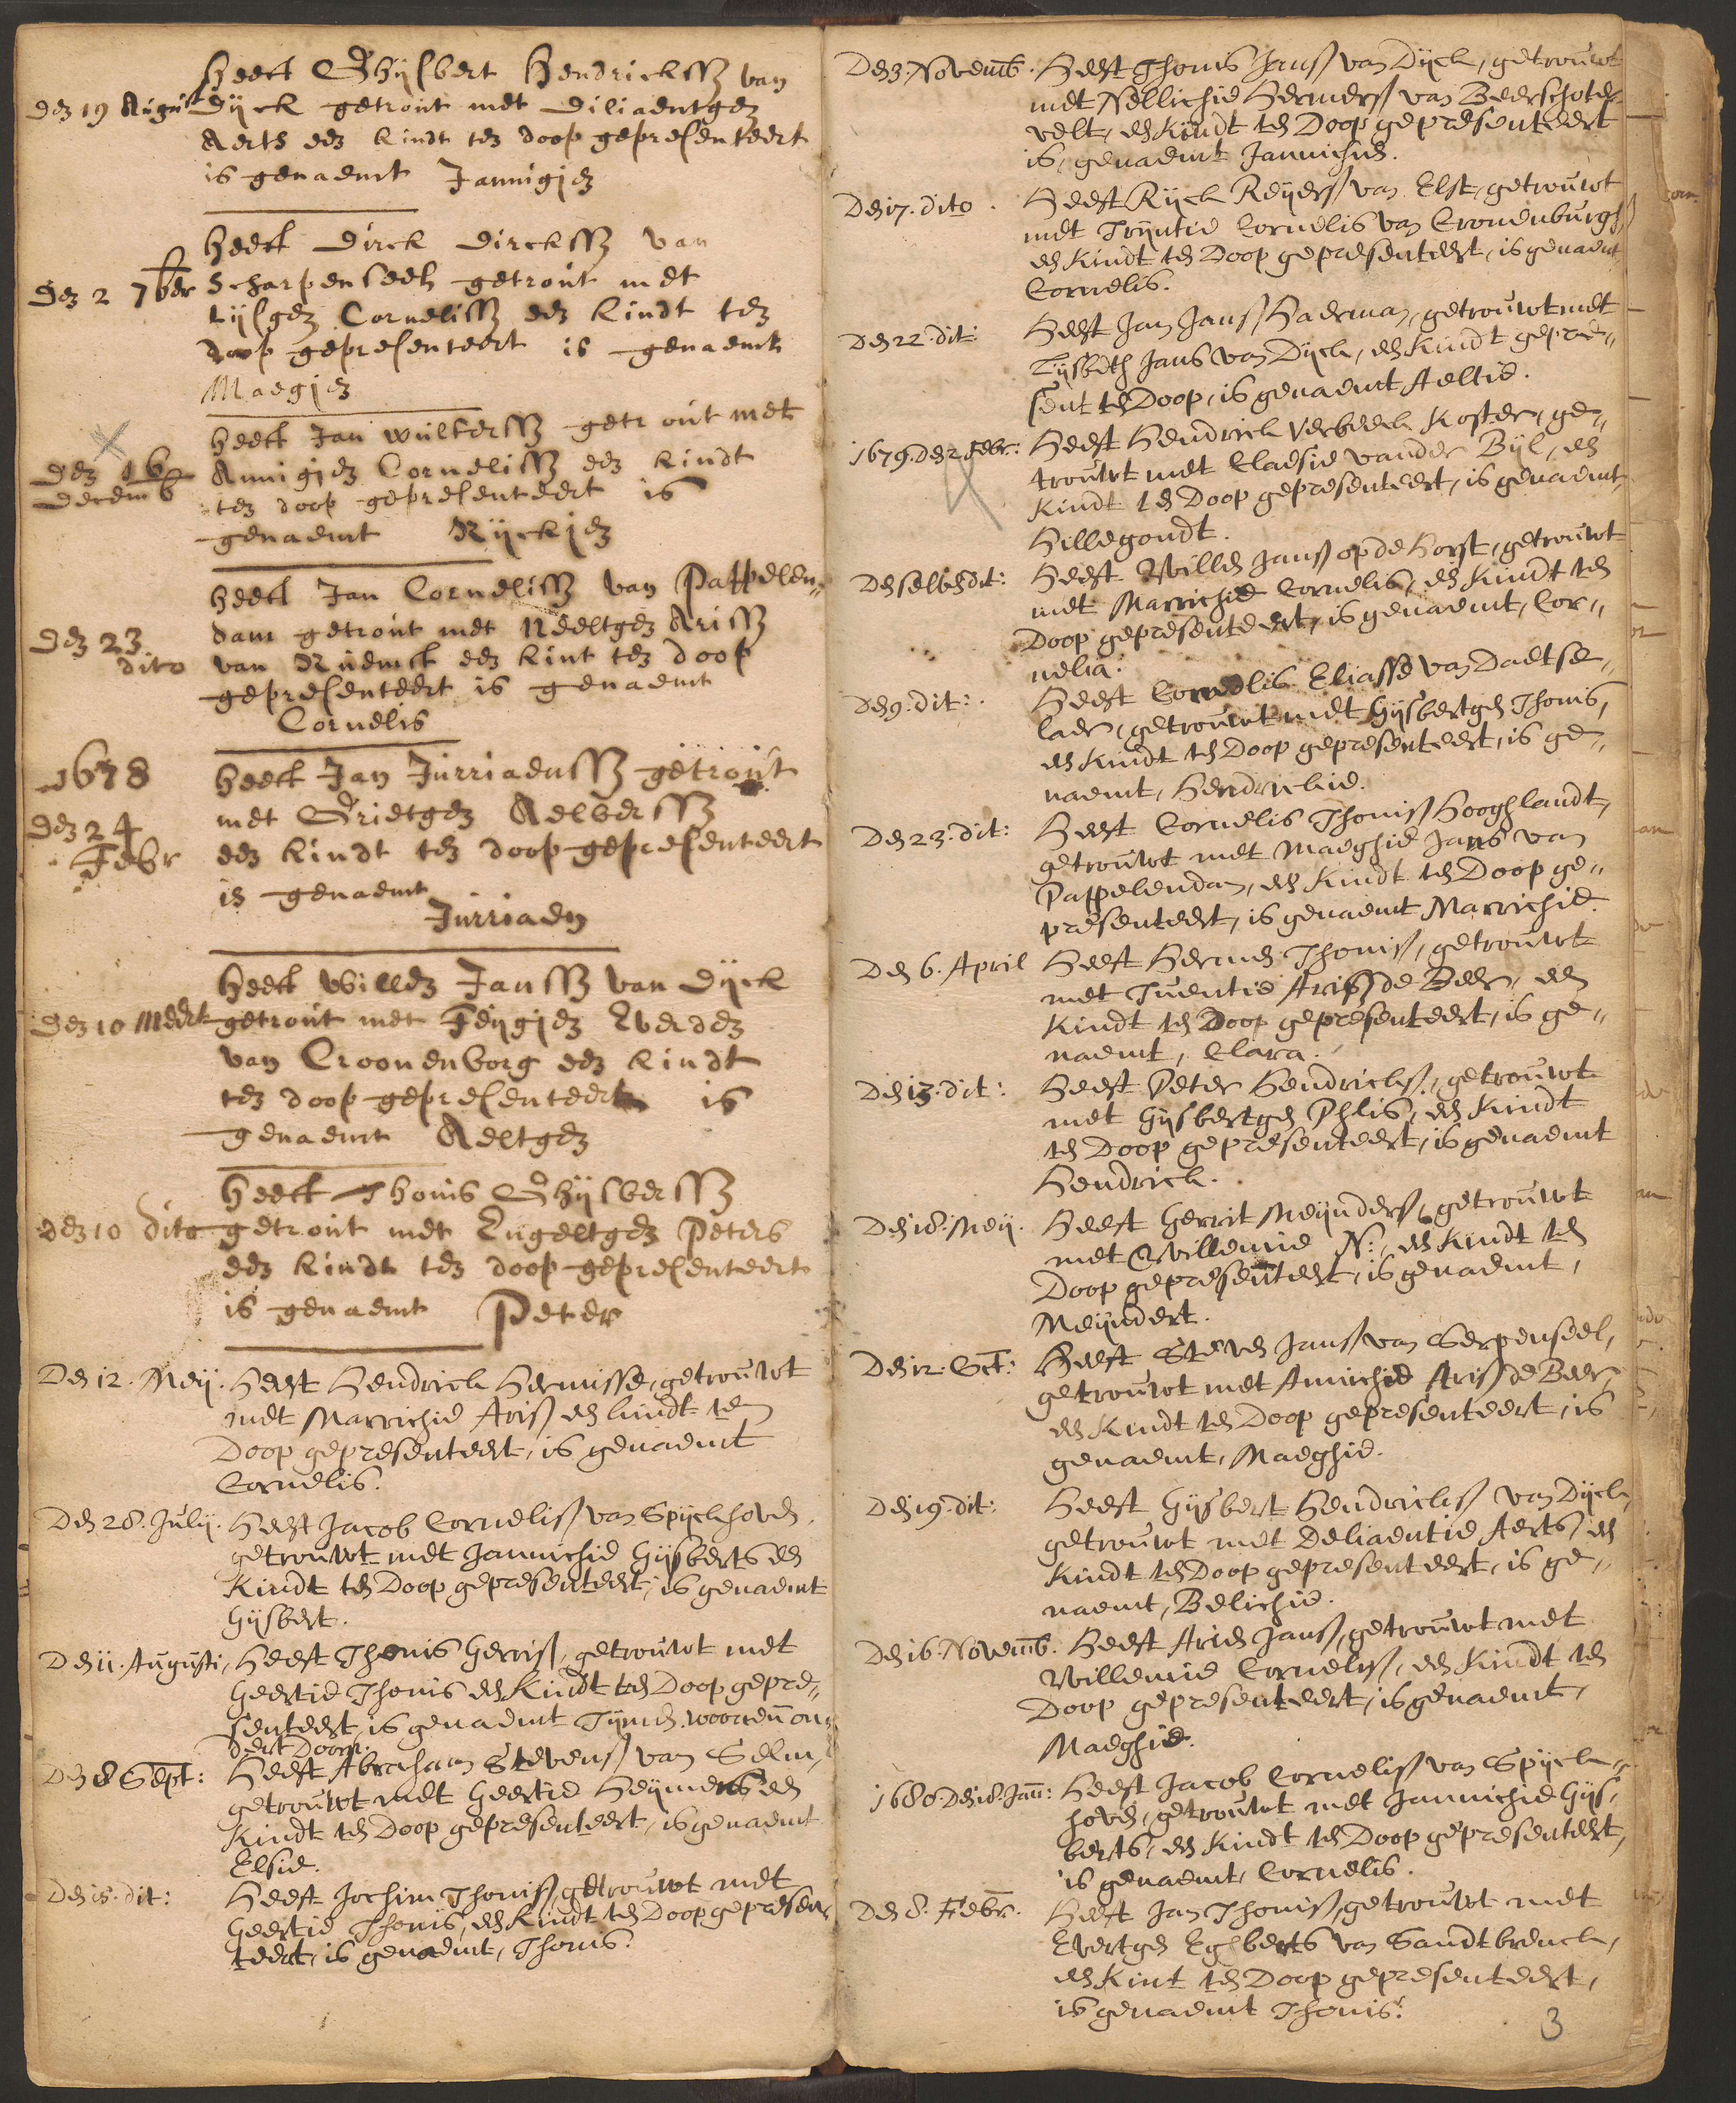 heeft Ghijsbert Hendricksz van
den 19 Augus Dijck getrout met Diliaentgen
Aerts een kindt ten doop gepresenteert
is genaemt Jannigjen
heeft Dirck Dircksz van
den 2 7ber Scharpenseel getrout met
Lijsgen Cornelisz een kindt ten
doop gepresenteert is genaemt
Maegjen
heeft Jan Wultersz getrout met
den 16 decemb Annigjen Cornelisz een kindt
ten doop gepresenteert is
genaemt Rijckjen
heeft Jan Cornelisz van Pappelen„
den 23 dito dam getrout met Neeltgen Arisz
van Ruemst een kint ten doop
gepresenteert is genaemt
Cornelis
1678 heeft Jan Jurriaensz getrout
den 24 Febr met Grietgen Aelbersz
een kindt ten doop gepresenteert
is genaemt
Jurriaen
heeft Willen Jansz van Dijck
den 10 Meert getrout met Feijgjen Everden
van Croonenborg een kindt
ten doop gepresenteert is
genaemt Aeltgen
heeft Thonis Ghijsbersz
den 10 dito getrout met Engeltgen Peters
een kindt ten doop gepresenteert
is genaemt Peter
Den 12. Meij. Heeft Hendrick Hermisse, getrouwt
met Marrichie Ariss een kindt ten
Doop gepresenteert, is genaemt
Cornelis.
Den 28. Julij. Heeft Jacob Corneliss van Spijckhoven,
getrouwt met Jannichie Gijsberts een
Kindt ten Doop gepresenteert, is genaemt
Gijsbert.
Den 11. Augusti, Heeft Thonis Gerriss, getrouwt met
Geertie Thonis een Kindt ten Doop gepre„
senteert, is genaemt Tijmen. woonen on„
dert Doorn.
Den 8 Sept: Heeft Abraham Stevenss van Selm,
getrouwt met Geertie Heijmens een
Kindt ten Doop gepresenteert, is genaemt
Elsie.
Den 15. dit: Heeft Jochim Thoniss, getrouwt met
Geertie Thonis, een Kindt ten Doop gepresen„
teert, is genaemt, Thonis.
Den 3. Novemb. Heeft Thonis Janss van Dijck, getrouwt
met Nellichie Hermerss van Beerschoter„
velt, een Kindt ten Doop gepresenteert
is, genaemt Jannichie.
Den 17. dito. Heeft Rijck Reijerss van Elst, getrouwt
met Trijntie Cornelis van Cronenburgh,
een Kindt ten Doop gepresenteert, is genaemt
Cornelis.
Den 22. dit: Heeft Jan Janss Haerman, getrouwt met
Lijsbeth Jans van Dijck, een Kindt gepre„
sent ten Doop, is genaemt Aeltie.
1679. Den 2 Febr: Heeft Hendrick Verbeeck Koster, ge„
trouwt met Claesie vander Bijl, een
Kindt ten Doop gepresenteert, is genaemt,
Hillegondt.
Den selven dit: Heeft Willen Janss op de Horst, getrouwt
met Marrichie Cornelis, een Kindt ten
Doop gepresenteert, is genaemt, Cor„
nelia.
Den 9. dit: Heeft Cornelis Eliasse van Daetse„
laer, getrouwt met Gijsbertgen Thonis,
een Kindt ten Doop gepresenteert, is ge„
naemt, Hendrickie.
Den 23. dit: Heeft Cornelis Thoniss Hooghlandt,
getrouwt met Maeghie Jans van
Pappelendam, een Kindt ten Doop ge„
presenteert, is genaemt Marrichie.
Den 6. April Heeft Hermen Thoniss, getrouwt
met Tuentie Ariss de Beer, een
Kindt ten Doop gepresenteert, is ge„
naemt, Clara.
Den 13. dit: Heeft Peter Hendrickss, getrouwt
met Gijsbertgen Phlis, een Kindt
ten Doop gepresenteert, is genaemt
Hendrick.
Den 18. Meij. Heeft Gerrit Meijnderss, getrouwt
met Willemie N:, een Kindt ten
Doop gepresenteert, is genaemt,
Meijndert.
Den 12. Oct: Heeft Steven Janss van Serpenseel,
getrouwt met Annichie Ariss de Beer,
een Kindt ten Doop gepresenteert, is
genaemt, Maeghie.
Den 19. dit: Heeft Gijsbert Hendrickss van Dijck,
getrouwt met Deliaentie Aerts, een
Kindt ten Doop gepresenteert, is ge„
naemt, Belichie.
Den 16. Novemb. Heeft Arien Janss, getrouwt met
Willemie Corneliss, een Kindt ten
Doop gepresenteert, is genaemt,
Maeghie.
1680. Den 18. Jan: Heeft Jacob Corneliss van Spijck„
hoven, getrouwt met Jannichie Gijs„
berts, een Kindt ten Doop gepresenteert,
is genaemt, Cornelis.
Den 8. Febr. Heeft Jan Thoniss, getrouwt met
Evertgen Egberts van Sandtbrenck,
een Kint ten Doop gepresenteert,
is genaemt Thonis.
3